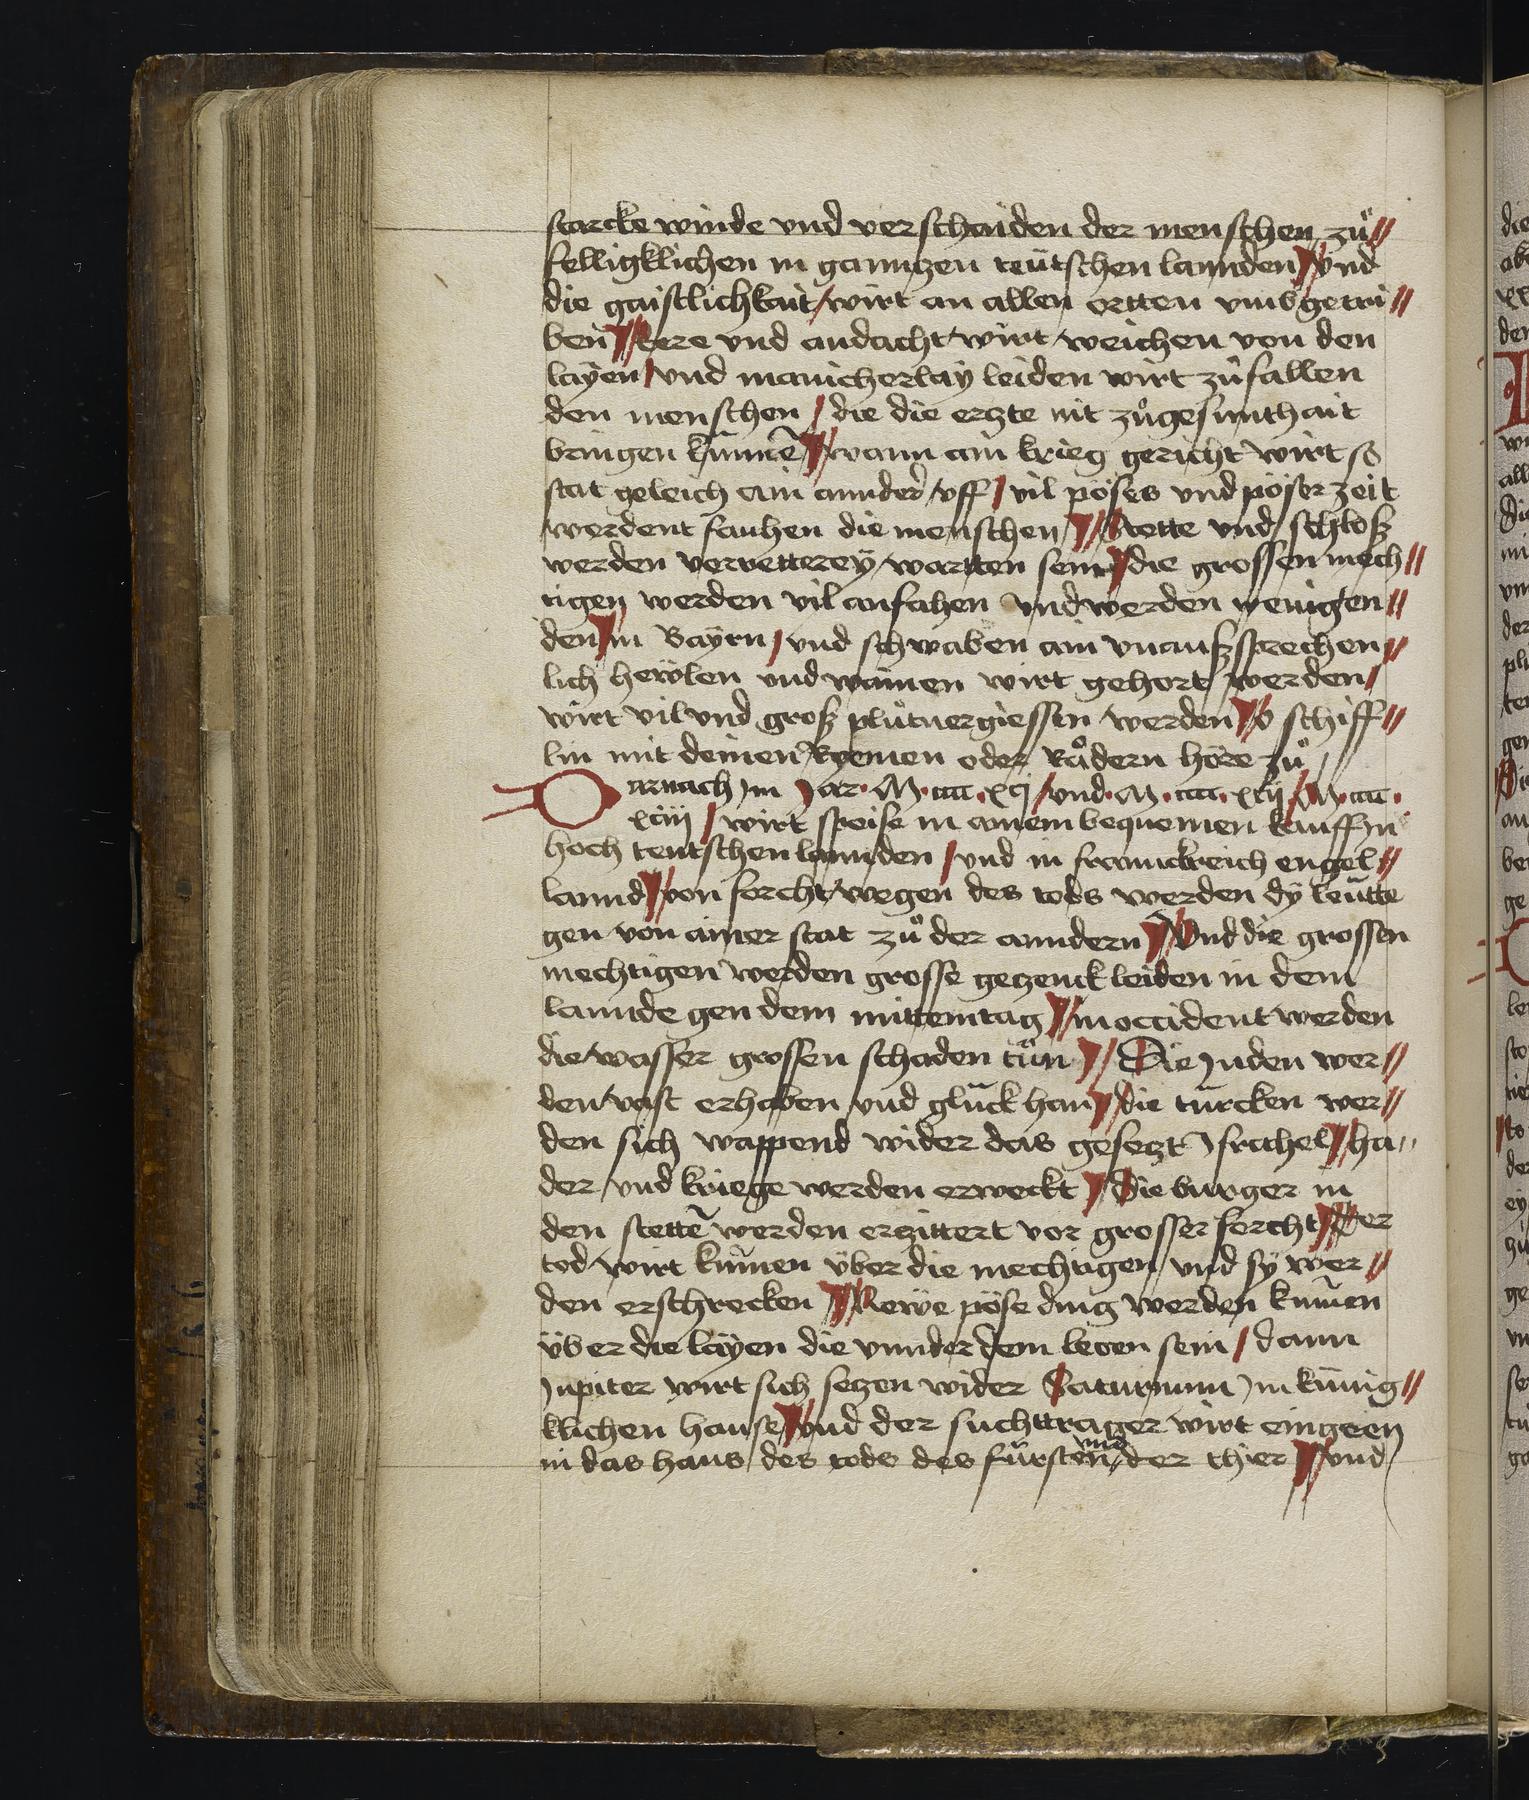 starcke winde vnd verschaiden der menschen zuͦ //
felligklichen in ganntzen teütschen lannden // Vnd
die gaistlichkait / wirt an allen ortten vmbgetri //
ben // Eere vnd andacht wirt weichen von den
layen / vnd manicherlay leiden wirt zuͦfallen
den menschen / die die ertzte nit zuͦ gesunthait
bringen kinnē // wann ain krieg gericht wirt so
stat geleich ain annder vff / vil pöses vnd pöser zeit
werdent fauhen die menschen // Stette vnd schloß
werden verretterey wartten sein // die grossen mech //
tigen werden vil anfahen vnd werden wenig en //
den // in Bayrn / vnd schwaben ain vnaußsprechen //
lich heẅlen vnd wainen wirt gehort werden /
wirt vil vnd groß pluͦtuergiessen werden // O schiff //
lin mit deinen Ryemen oder Rädern höre zuͦ
Darnach jm jar · M · cccc · xcj / vnd · M · cccc · xcij / M · cccc ·
xciij / wirt speise in ainem bequemen kauff jn
hoch teutschen lannden / vnd in franckreich engel //
lannd // von forcht wegen des tods werden dy leütte
gen von ainer stat zuͦ der anndern // Vnd die grossen
mechtigen werden grosse getzenck leiden in dem
lannde gen dem mittemtag // in occident werden
die wasser grossen schaden tuͦn // Die juden wer //
den vast erhaben vnd glück han // die türcken wer //
den sich wappend wider das gesetzt jsrahel // ha //
der vnd kriege werden erweckt // Die burger in
den stettē werden erzittert vor grosser forcht // Der
tod wirt kumen über die mechtigen vnd sy wer //
den erschrecken // Neẅe pöse ding werden kumen
über die layen die vnnder dem leoen sein / dann
jupiter wirt sich setzen wider Saturnum jm künig //
klichen hause // vnd der suchttrager wirt eingeen
in das haus des tods des fürsten vnd der thier // vnd